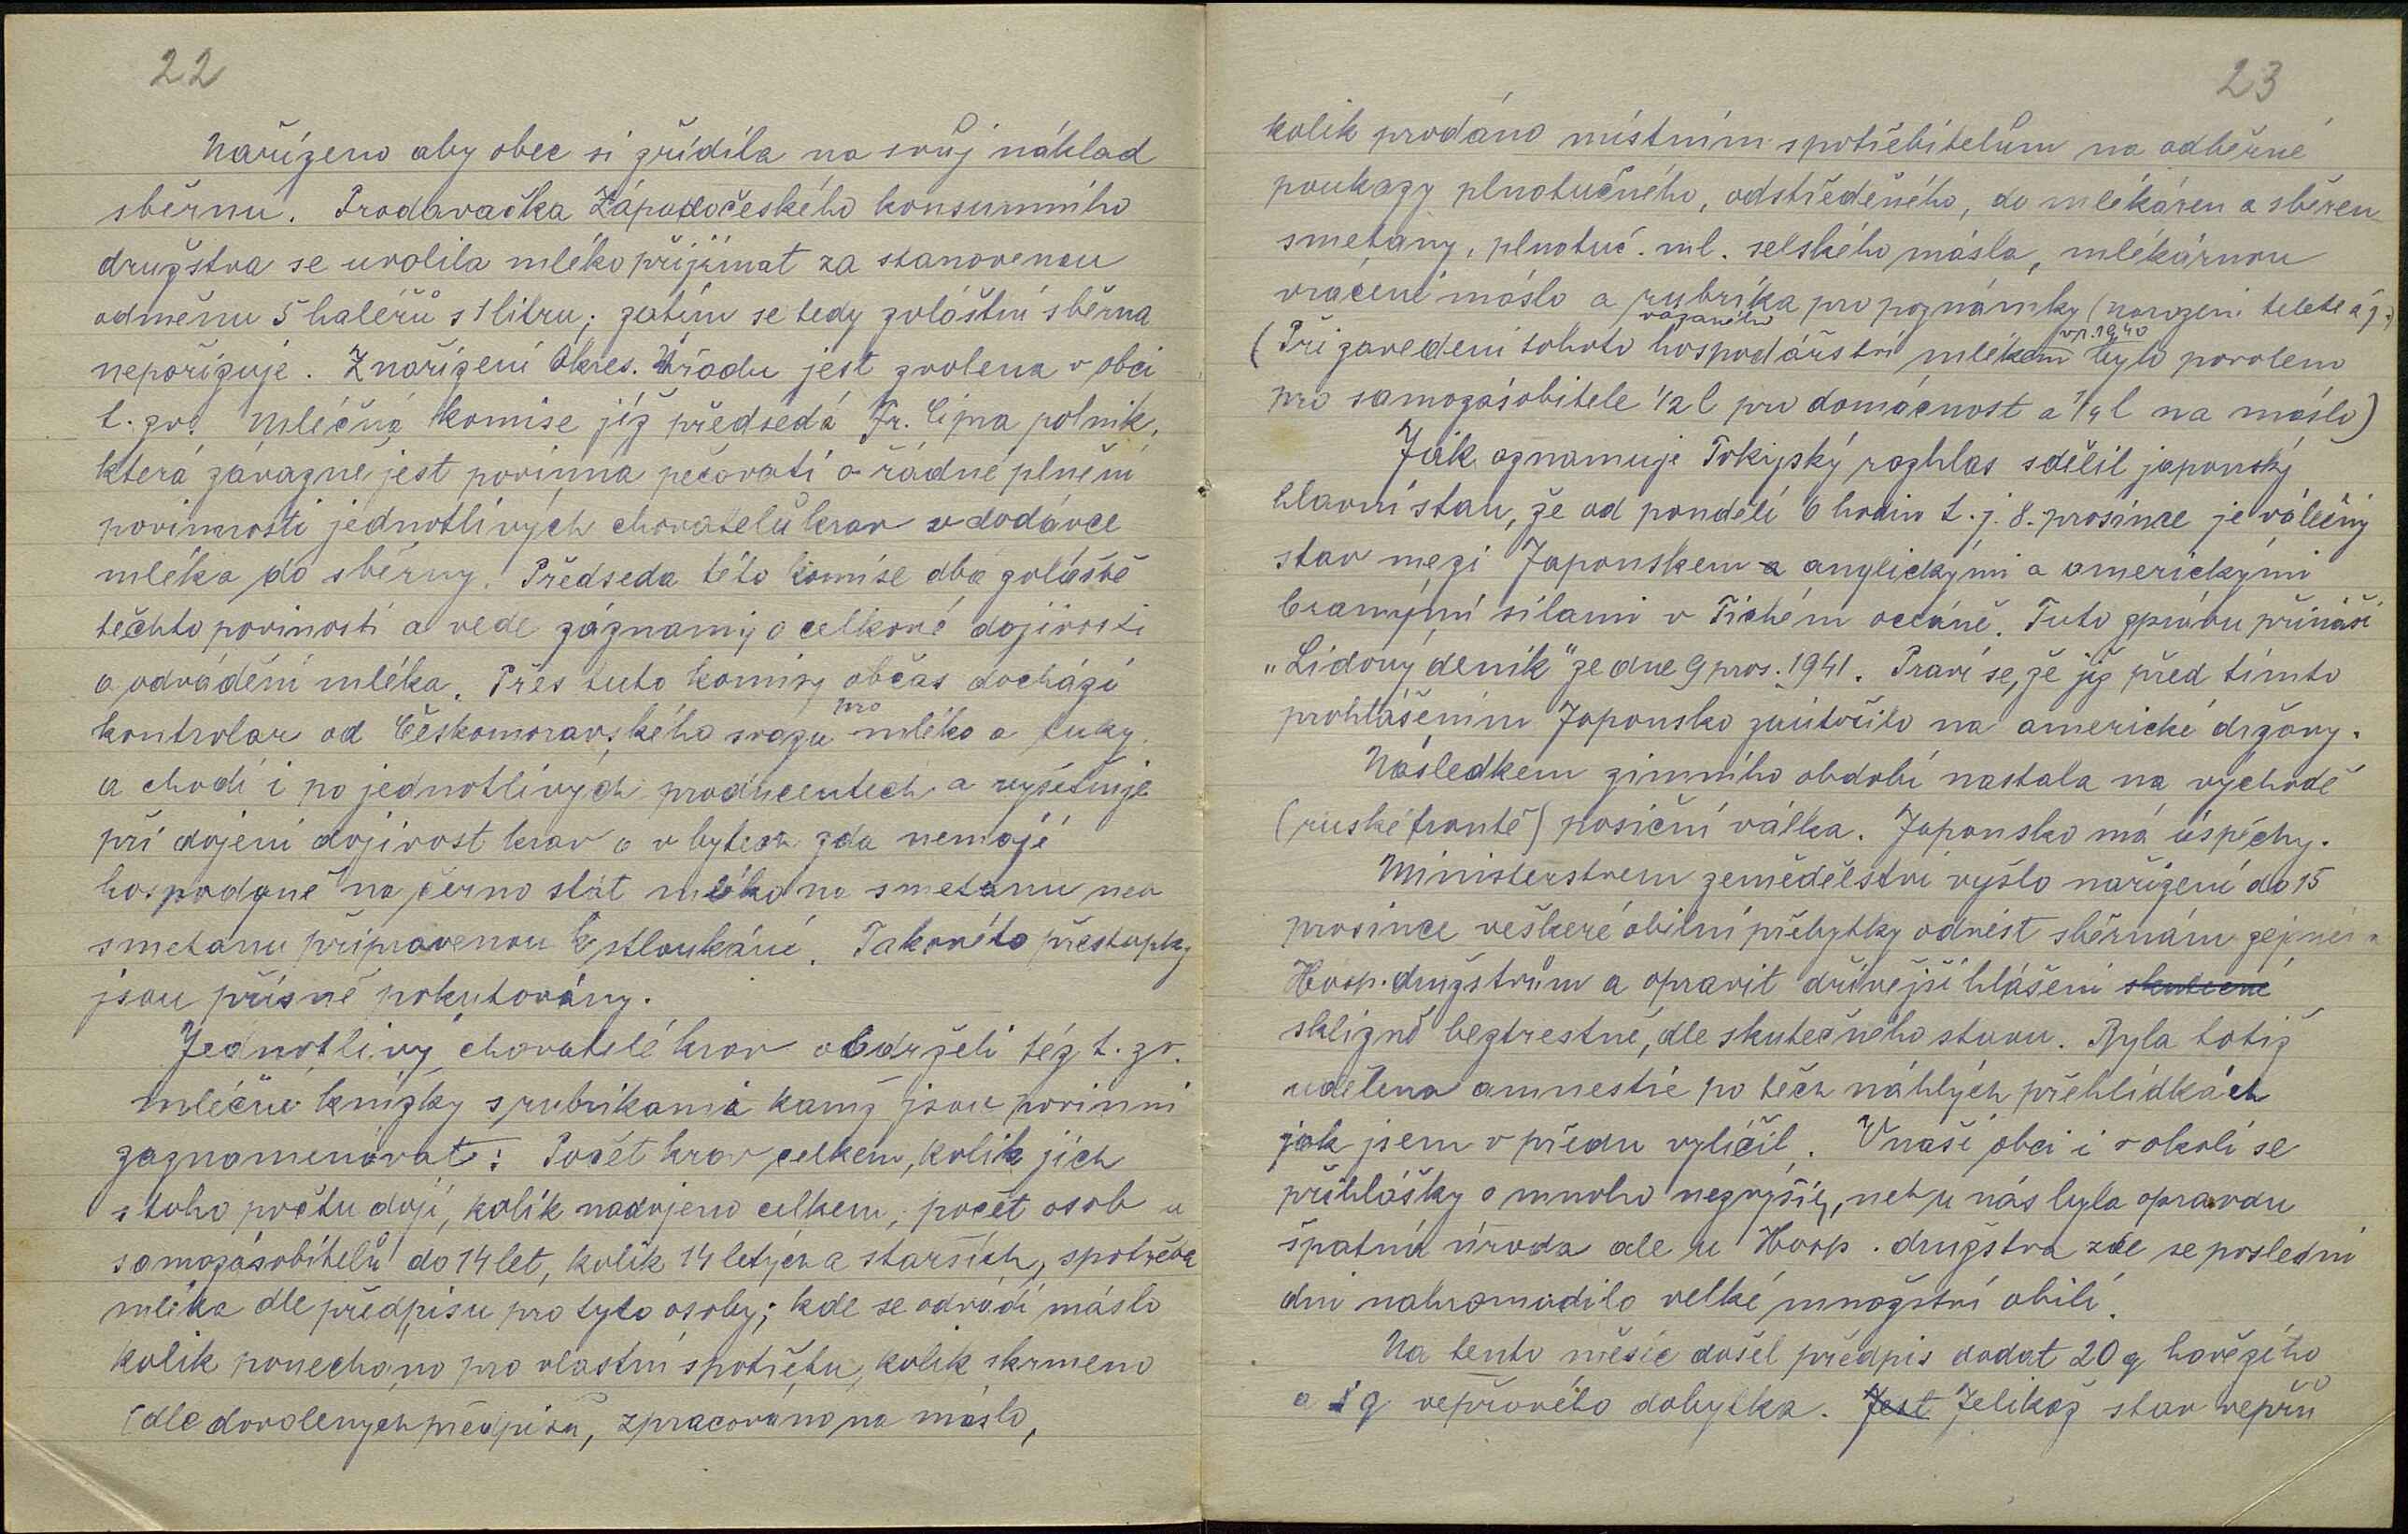 22
Nařízeno aby obec si zřídila na svůj náklad
sběrnu. Prodavačka Západočeského konsumního
družstva se uvolila mléko přijímat za stanovenou
odměnu 5 haléřů s 1 litru; zatím se tedy zvláštní sběrna
nepořizuje. Z nařízení Okres. Úřadu jest zvolena v obci
t. zv. Mléčná komise jíž předsedá Fr. Cipra polník,
která závazně jest povinna pečovati o řádné plnění
povinnosti jednotlivých chovatelů krav v dodávce
mléka do sběrny. Předseda této komise dbá zvláště
těchto povinosti a vede záznamy o celkové dojivosti
a odvádění mléka. Přes tuto komisy občas dochází
kontrolar od Českomoravského svazu pro mléko a tuky
a chodí i po jednotlivých producentech a vyšetřuje
při dojení dojivost krav a v bytech zda nemají
hospodyně na černo stát mléko na smetanu neb
smetanu připravenou k stloukání. Takovéto přestupky
jsou přísně pokutovány.
Jednotlivý chovatelé krav obdrželi též t. zv.
mléčné knížky s rubrikami kamž jsou povinni
zaznamenávat: Počet krav celkem, kolik jich
s toho počtu dojí, kolik nadojeno celkem, počet osob u
samozásobitelů do 14 let, kolik 14 letých a starších, spotřeba
mléka dle předpisu pro tyto osoby; kde se odvádí máslo
kolik ponecháno pro vlastní spotřebu, kolik skrmeno
(dle dovolených předpisů, zpracováno na máslo,
23
kolik prodáno místním spotřebitelům na odběrné
poukazy plnotučného, odstředěného, do mlékáren a sběren
smetany, plnotuč. ml. selského másla, mlékárnou
vrácené máslo a rubrika pro poznámky (narození telete a j.)
(Při zavedení tohoto vázaného hospodářství mlékem v r. 1940 bylo povoleno
pro samozásobitele 1/2 l pro domácnost a 1/4 l na máslo)
Jak oznamuje Tokijský rozhlas sdělil japonský
hlavní stan, že od pondělí 6 hodin t. j. 8. prosince je válečný
stav mezi Japonskem a anglickými a americkými
branými silami v Tichém oceáně. Tuto zprávu přináší
„Lidový deník" ze dne 9 pros. 1941. Praví se, že již před tímto
prohlášením Japonsko zaútočilo na americké državy.
Následkem zimního období nastala na východě
(ruské frontě) posiční válka. Japonsko má úspěchy.
Ministerstvem zemědělství vyšlo nařízení do 15
prosince veškeré obilní přebytky odvést sběrnám zejména
Hosp. družstvům a opravit dřívější hlášení skutečné
sklizně beztrestně, dle skutečného stavu. Byla totiž
udělena amnestie po těch náhlých přehlídkách
jak jsem v předu vylíčil. V naší obci i v okolí se
přihlášky o mnoho nezvýšily, neb u nás byla opravdu
špatná úroda ale u Hosp. družstva zde se poslední
dni nahromadilo velké množství obilí.
Na tento měsíc došel předpis dodat 20 q hovězího
a 8 q vepřového dobytka. Jest Jelikož stav vepřů